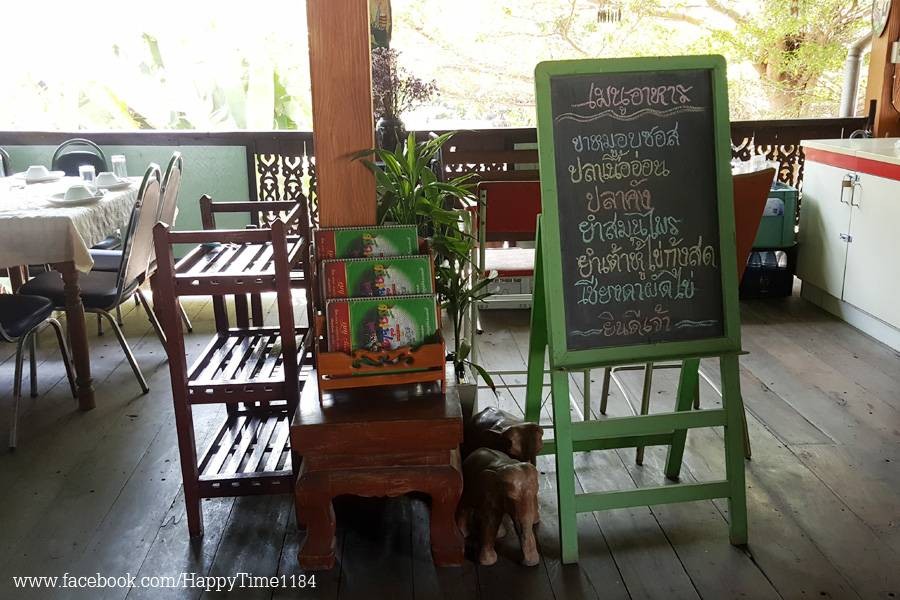 เมนูอาหาร
ขาหมูอบซอส
ปลาเนื้ออ่อน
ปลาคัง
ยำสมุนไพร
ยำเต้าหู้ไข่กุ้งสด
เชียงดาผัดไข่
ยินดีเจ้า
www.facebook.com/HappyTime1184